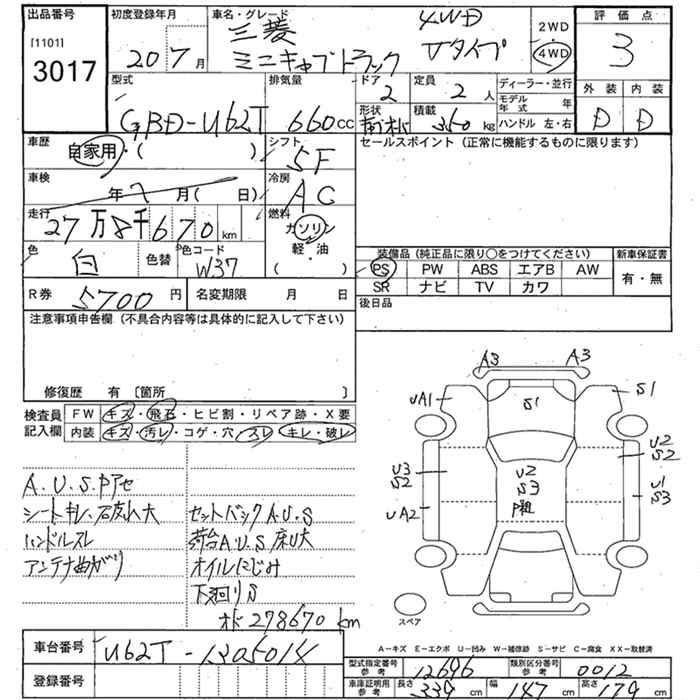 出品番号
[1101]
3017
初度登録年月
20 7月
車名・グレード
三菱 4WD
ミニキャブトラック Vタイプ
2WD
4WD
評価点
3
外装 内装
D D
型式
GBD-U62T
排気量
660cc
ドア
2
定員
2人
形状
積載
350kg
ディーラー・並行
モデル年式 年
ハンドル 左・右
車歴
自家用・( )
シフト
5F
車検
年 月( 日)
冷房
AC
走行
27万8千670km
燃料
ガソリン
軽・油
( )
色
白
色替
色コード
W37
セールスポイント(正常に機能するものに限ります)
装備品(純正品に限り○をつけてください)
PS PW ABS エアB AW
SR ナビ TV カワ
新車保証書
有・無
R券 5700円
名変期限 月 日
後日品
注意事項申告欄(不具合内容等は具体的に記入して下さい)
修復歴 有 〔箇所 〕
検査員記入欄
FW キズ・飛石・ヒビ割・リペア跡・X要
内装 キズ・汚レ・コゲ・穴・スレ・キレ・破レ
A.U.S.Pアセ
シートキレ、破れ大
ハンドルスレ
アンテナ曲がり
セットバックA.U.S
荷台A.U.S 床U大
オイルにじみ
下廻りS
オド278670km
A3 A3
UA1 S1 S1
U3 S2
U2 S3 P粗
U2 S2
U1 S3
UA2
スペア
A-キズ E-エクボ U-凹み W-補修跡 S-サビ C-腐食 XX-取替済
車台番号
U62T-1305014
登録番号
型式指定番号 参考
12646
類別区分番号 参考
0012
車庫証明用 参考
長さ 339cm
幅 147cm
高さ 179cm